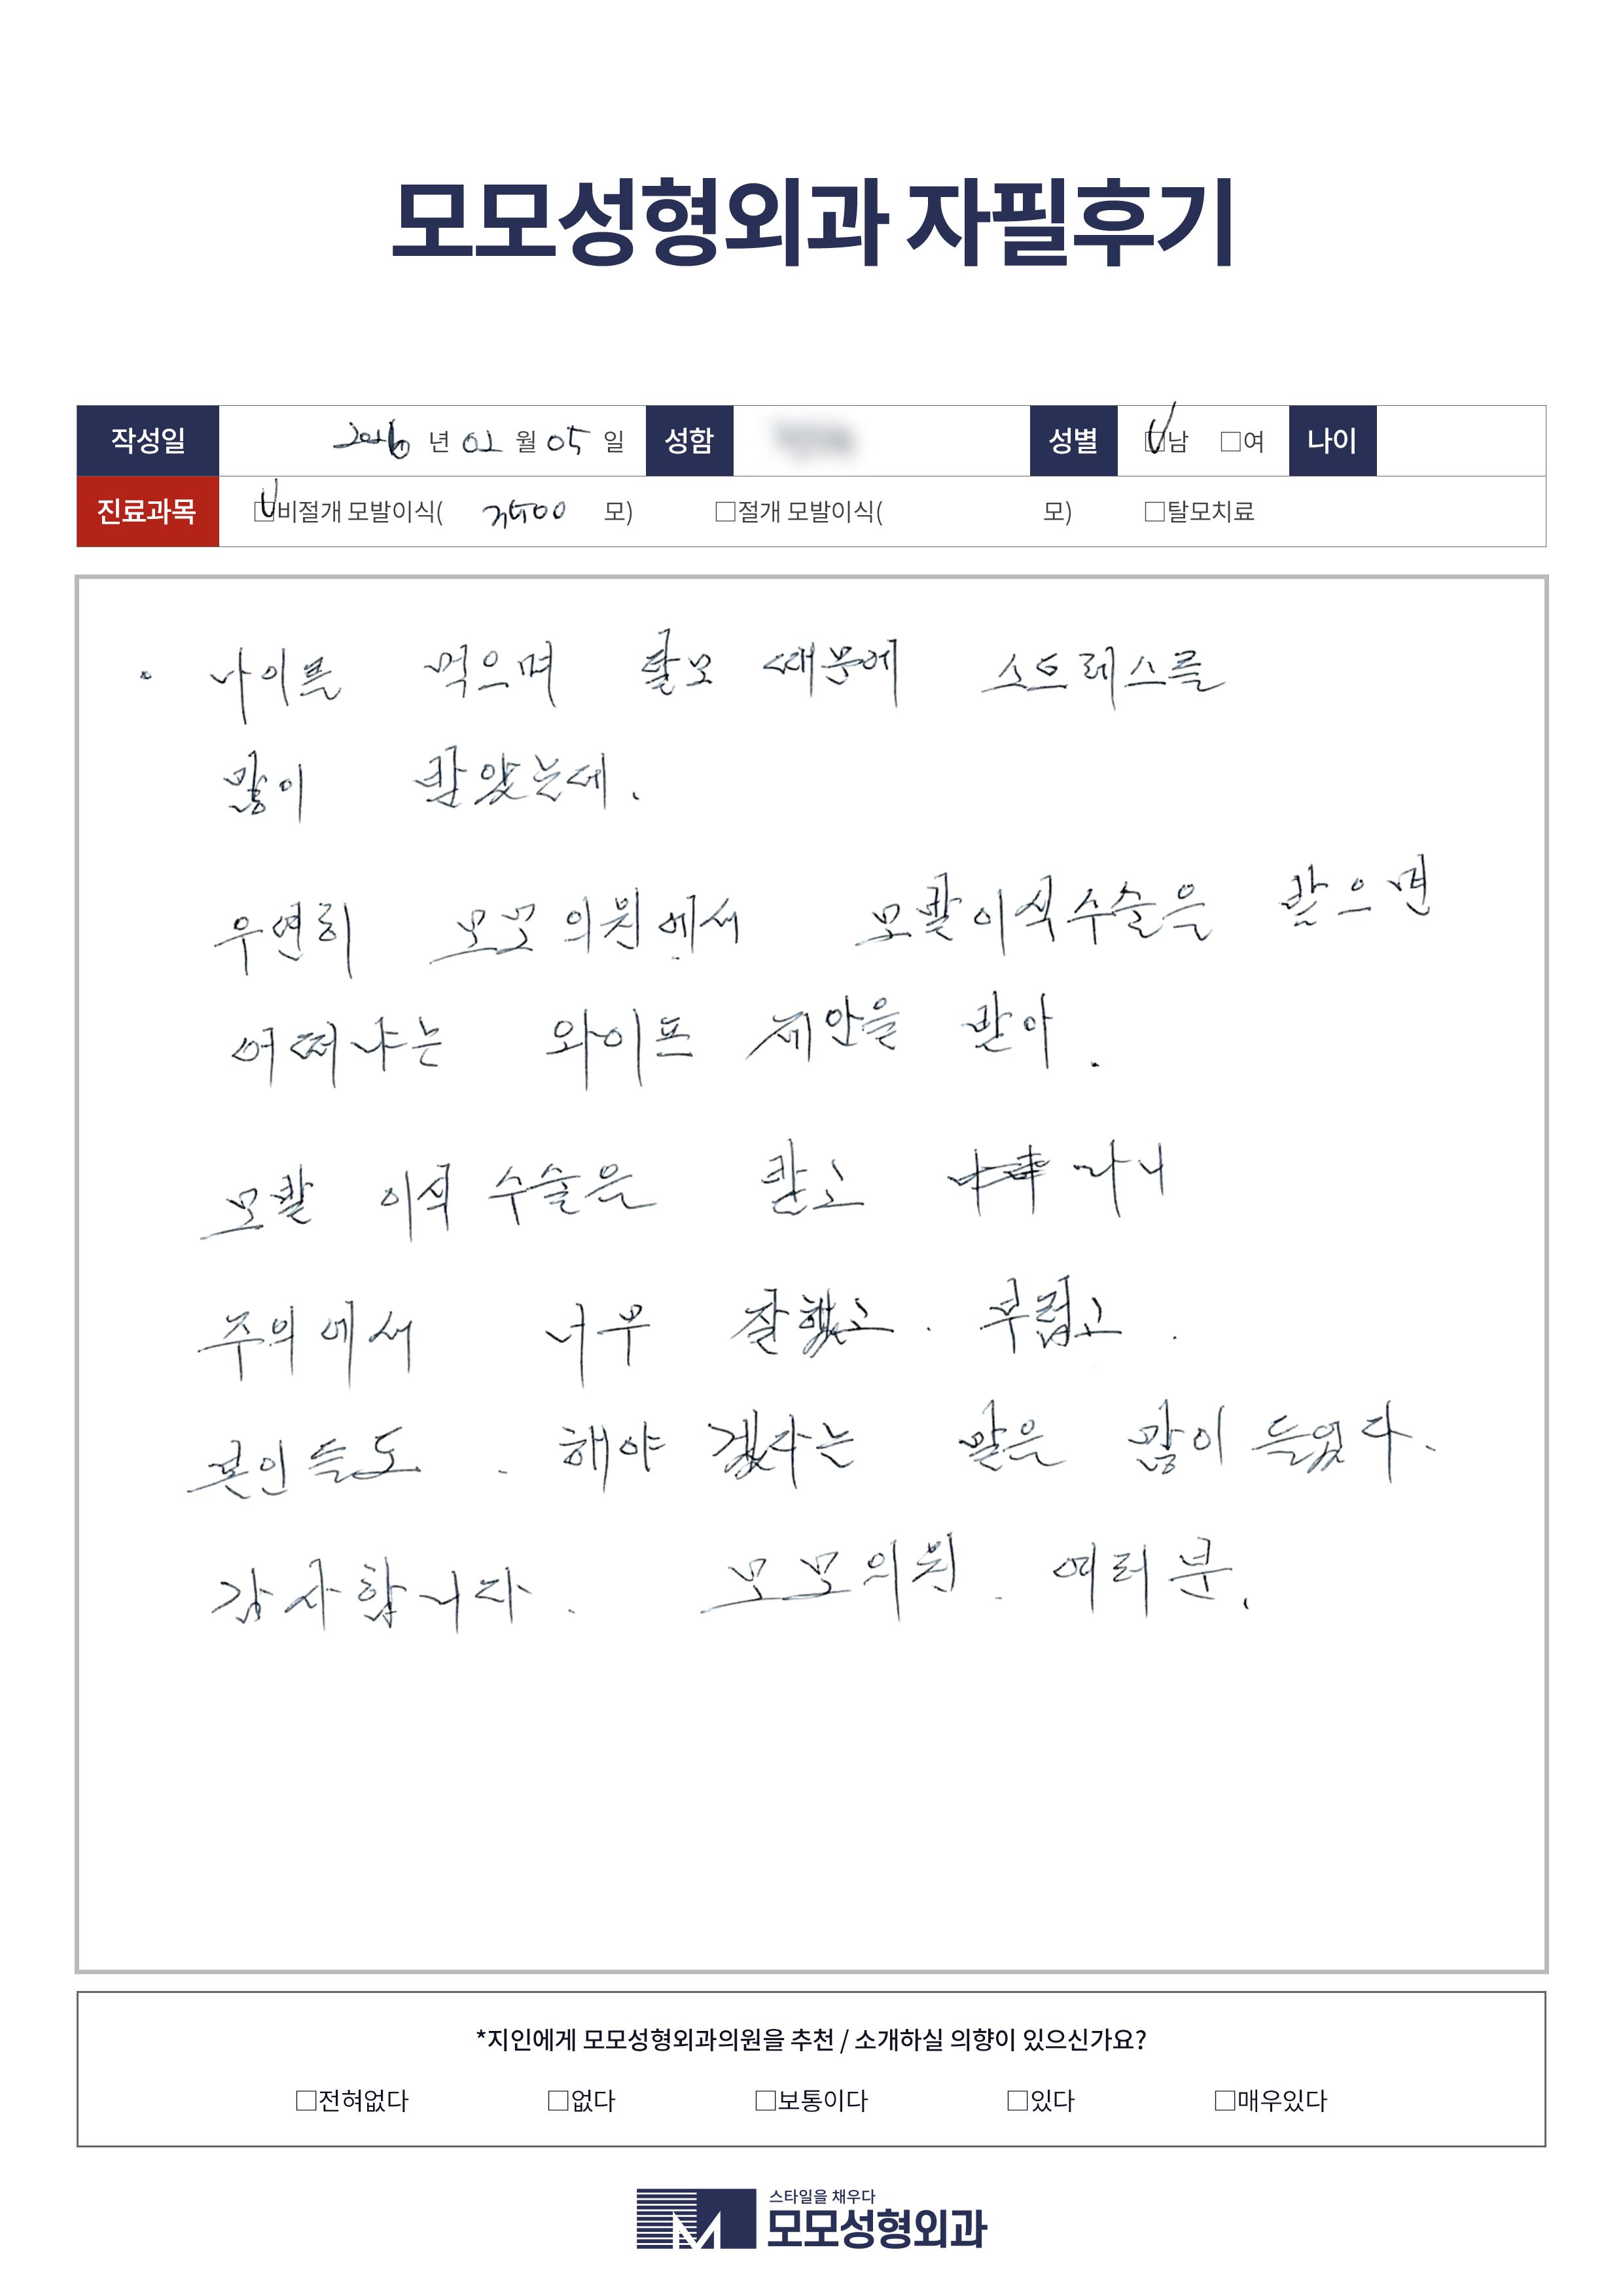 모모성형외과 자필후기
작성일 2026 년 02 월 05 일 성함 성별 □남 □여 나이
진료과목 □비절개 모발이식( 모) □절개 모발이식( 모) □탈모치료
· 나이를 먹으며 탈모 때문에 스트레스를
많이 받았는데.
우연히 모모의원에서 모발이식수술을 받으면
어떠냐는 와이프 제안을 받아.
모발 이식 수술을 받고 나니
주의에서 너무 잘했고. 부럽고.
본인들도. 해야 겠다는 말은 많이 들었다.
감사합니다. 모모의원. 여러분.
*지인에게 모모성형외과의원을 추천 / 소개하실 의향이 있으신가요?
□전혀없다 □없다 □보통이다 □있다 □매우있다
스타일을 채우다
모모성형외과